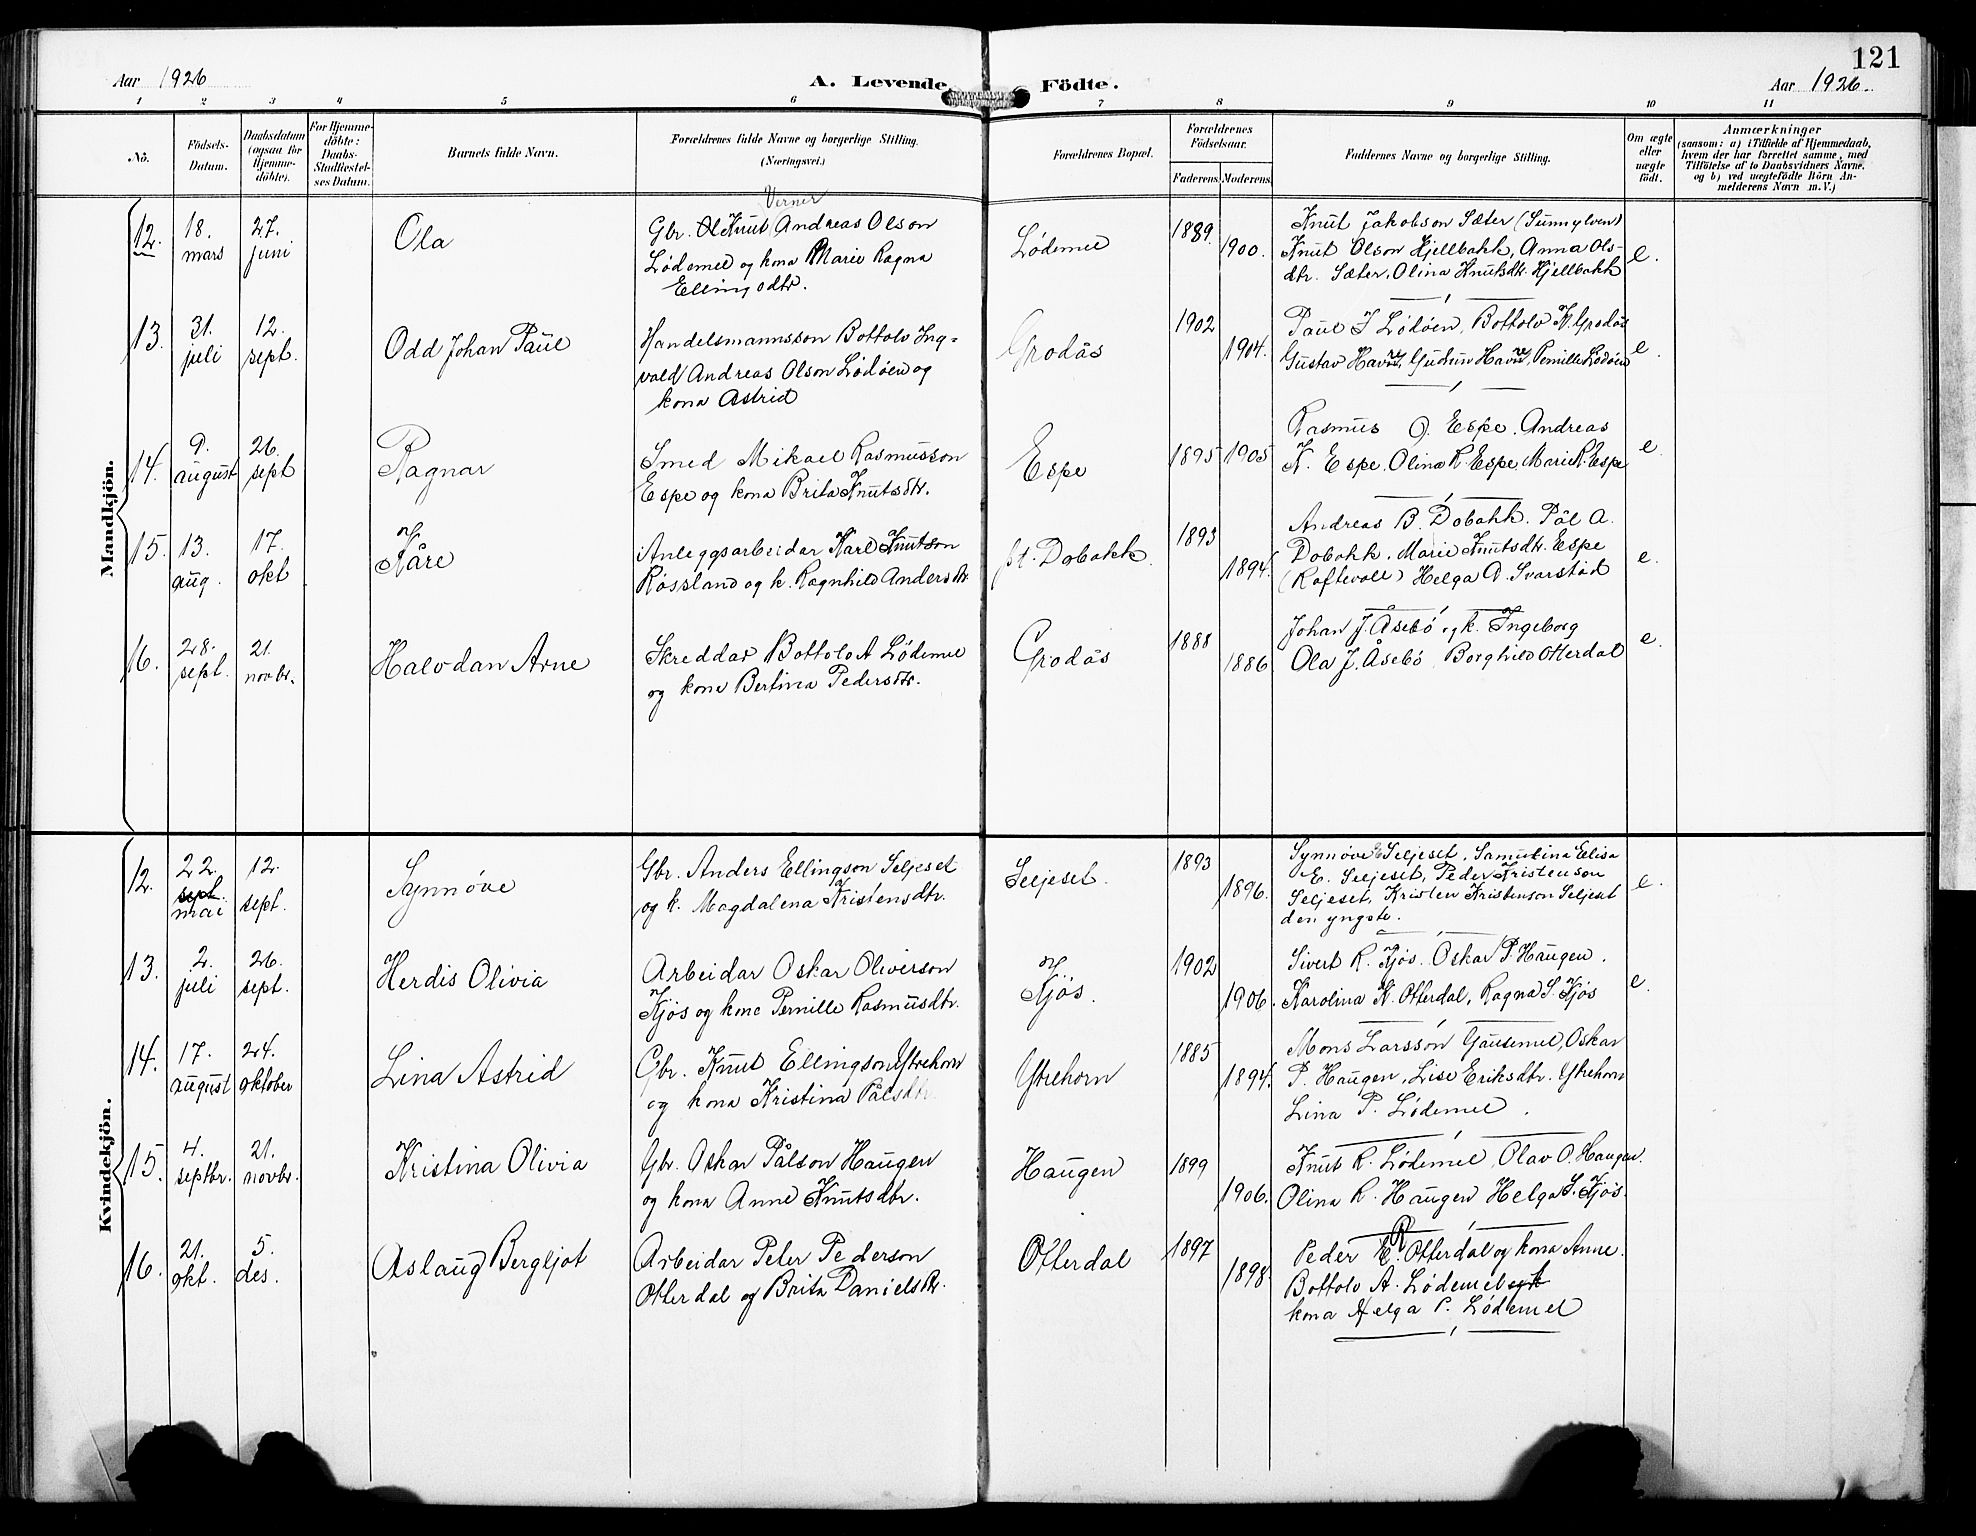 121
Aar 1926
A. Levende Födte.
Aar 1926.
1 2 3 4 5 6 7 8 9 10 11
Nö.
Födsels-
Datum.
Daabsdatum
(ogsaa for
Hjemme-
döbte).
For Hjemme-
döbte:
Daabs-
Stadfæstel-
ses Datum.
Barnets fulde Navn.
Forældrenes fulde Navne og borgerlige Stilling.
(Næringsvei.)
Forældrenes Bopæl.
Forældrenes
Födselsaar.
Faderens. Moderens.
Faddernes Navne og borgerlige Stilling.
Om ægte
eller
uægte
födt.
Anmærkninger
(saasom: a) i Tilfælde af Hjemmedaab,
hvem der har forrettet samme, med
Tilföielse af to Daabsvidners Navne,
og b) ved uægtefödte Börn An-
melderens Navn m. V.)
Mandkjön.
12.
18.
mars
27.
juni
Ola
Verner
Gbr. Knut Andreas Olson
Lødemel og kona Marie Ragna
Ellingsdtr.
Lødemel
1889.
1900.
Knut Jakobson Sæter (Sunnylven)
Knut Olson Hjellbakk, Anna Ols-
dtr. Sæter, Olina Knutsdtr. Hjellbakk
e.
13.
31.
juli
12.
sept.
Odd Johan Paul
Handelsmannsson Bottolv Ing-
vald Andreas Olson Lødøen og
kona Astrid
Grodås
1902
1904.
Paul J Lødøen, Bottolv K. Grodås
Gustav Havre, Gudrun Havre, Pernille Lødøen
e.
14.
9.
august
26.
sept
Ragnar
Smed Mikael Rasmusson
Espe og kona Brita Knutsdtr.
Espe
1895 1905
Rasmus O. Espe. Andreas
K. Espe. Olina R. Espe, Marie R. Espe
e.
15.
13.
aug.
17.
okt
Kåre
Anleggsarbeidar Karl Knutson
Røssland og k. Ragnhild Andersdtr.
pt. Dobakk.
1893
1894.
Andreas B. Dobakk. Pål A.
Dobakk. Marie Knutsdtr. Espe
(Raftevoll) Helga A. Svarstad
e.
16.
28.
sept.
21.
novbr.
Halvdan Arne
Skreddar Bottolv A Lødemel
og kona Bertina Pedersdtr.
Grodås
1888
1886
Johan J. Åsebø og k. Ingeborg
Ola J. Åsebø, Borghild Otterdal
e.
Kvindekjön.
12.
22.
sept.
mai
12.
sept.
Synnøve
Gbr. Anders Ellingson Seljeset
og k. Magdalena Kristensdtr.
Seljeset.
1893
1896.
Synnøve E Seljeset, Samulina Elisa
E. Seljeset, Peder Kristenson
Seljeset, Kristen Kristenson Seljeset
den yngste.
e.
13.
2.
juli
26.
sept.
Herdis Olivia
Arbeidar Oskar Oliverson
Kjøs og kona Pernille Rasmusdtr.
Kjøs.
1902
1906.
Sivert R. Kjøs. Oskar P. Haugen.
Karolina K. Otterdal, Ragna S. Kjøs
e.
14.
17.
august
24.
oktober
Lina Astrid
Gbr. Knut Ellingson Ytrehorn
og kona Kristina Pålsdtr.
Ytrehorn
1885
1894.
Mons Larsson Gausemel, Oskar
P. Haugen, Lise Eriksdtr. Ytrehorn
Lina P. Lødemel.
15.
4.
septbr.
21.
novbr.
Kristina Olivia
Gbr. Oskar Pålson Haugen
og kona Anne Knutsdtr.
Haugen
1899
1906.
Knut R. Lødemel, Olav O. Haugen.
Olina R. Haugen Helga S. Kjøs.
16.
21.
okt.
5.
des.
Aslaug Bergljot
Arbeidar Peter Pederson
Otterdal og Brita Danielsdtr.
Otterdal
1897
1898.
Peder R. Otterdal og kona Anne.
Bottolv A. Lødemel og k
kona Helga P. Lødemel